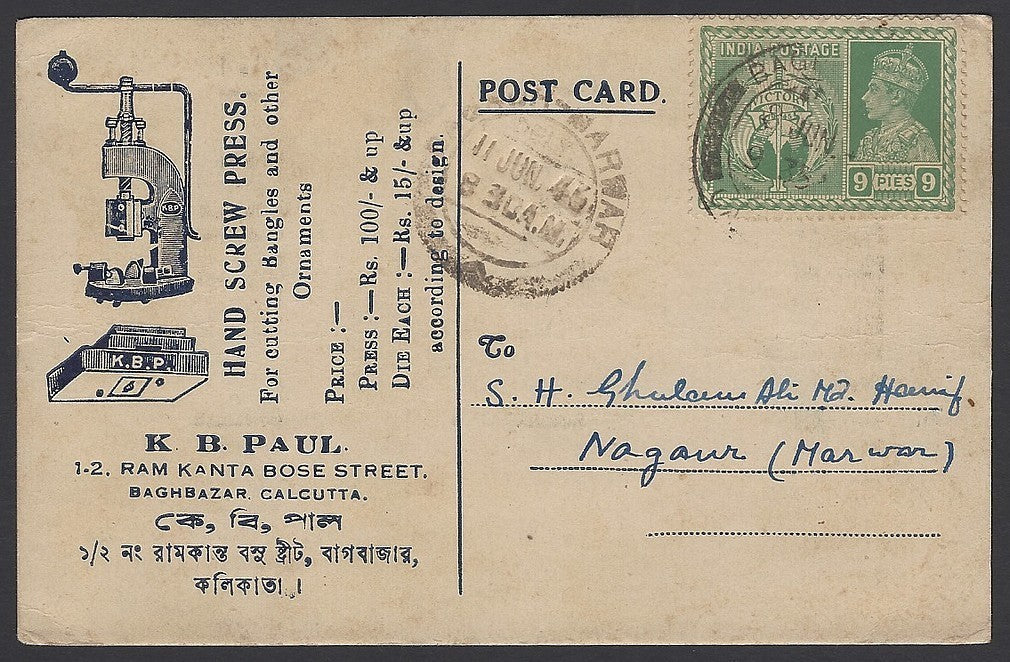 K.B.P.
K.B.P.
HAND SCREW PRESS.
For cutting Bangles and other
Ornaments
PRICE :—
PRESS :—Rs. 100/- & up
DIE EACH :—Rs. 15/- & up
according to design.
K. B. PAUL.
1-2, RAM KANTA BOSE STREET,
BAGHBAZAR, CALCUTTA.
কে, বি, পাল
১/২ নং রামকান্ত বসু ষ্ট্রীট, বাগবাজার,
কলিকাতা।
POST CARD.
MARWAR
11 JUN. 46
8 30 A.M.
INDIA POSTAGE
VICTORY
9 PIES 9
BAGH
JUN
To
S. H. Ghulam Ali Md. Hanif
Nagaur (Marwar)